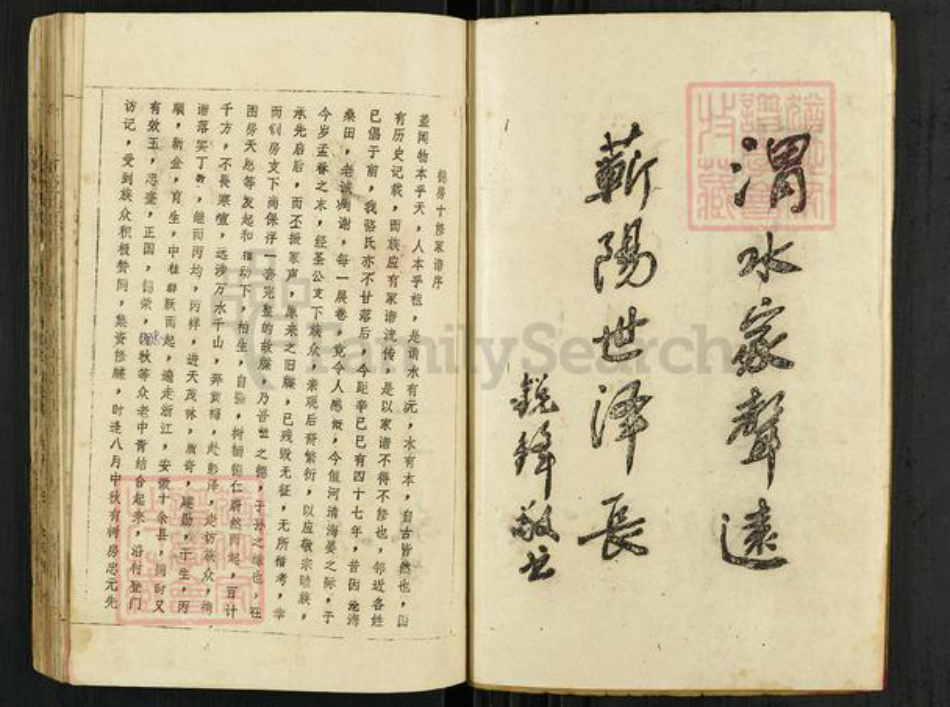 渭水家聲遠
蘄陽世澤長
銳鋒敬书
房十修家谱序
盖闻物本乎天，人本乎祖，是谓水有沅，木有本，自古皆然也，国
有历史记载，而族应有家谱流传，是以家谱不得不修也，邻近各姓
已倡于前，我骆氏亦不甘落后，今距辛巳已有四十七年，昔因沧海
桑田，老诚凋谢，每一展卷，竟令人感慨，今值河清海晏之际，于
今岁孟春之末，经圣公支下族众，亲观后裔繁衍，以应敬宗睦族，
承先启后，而丕振家声，原来之旧牒，已残毁无征，无所稽考，幸
而钊房支下尚保存一套完整的故牒，乃吾堂之德，子孙之缘也，在
图房天忠等发起和推动下，柏生，自，树楠，仁蔚然而起，百计
千方，不畏寒暄，远涉万水千山，奔黄梅，赴彭泽，走访族众，
谱落实丁，继而丙均，丙祥，进天茂林，腐奇，建勋，于生，丙
顺，勤金，育生，中柱群跃而起，遍走浙江，安徽十余县，同时又
有效玉，忠奎，正国，荣，秋等众老中青结合起来，沿村登门
访记，受到族众积极赞同，集资修牒，时逢八月中秋有树房忠元先
FamilySearch